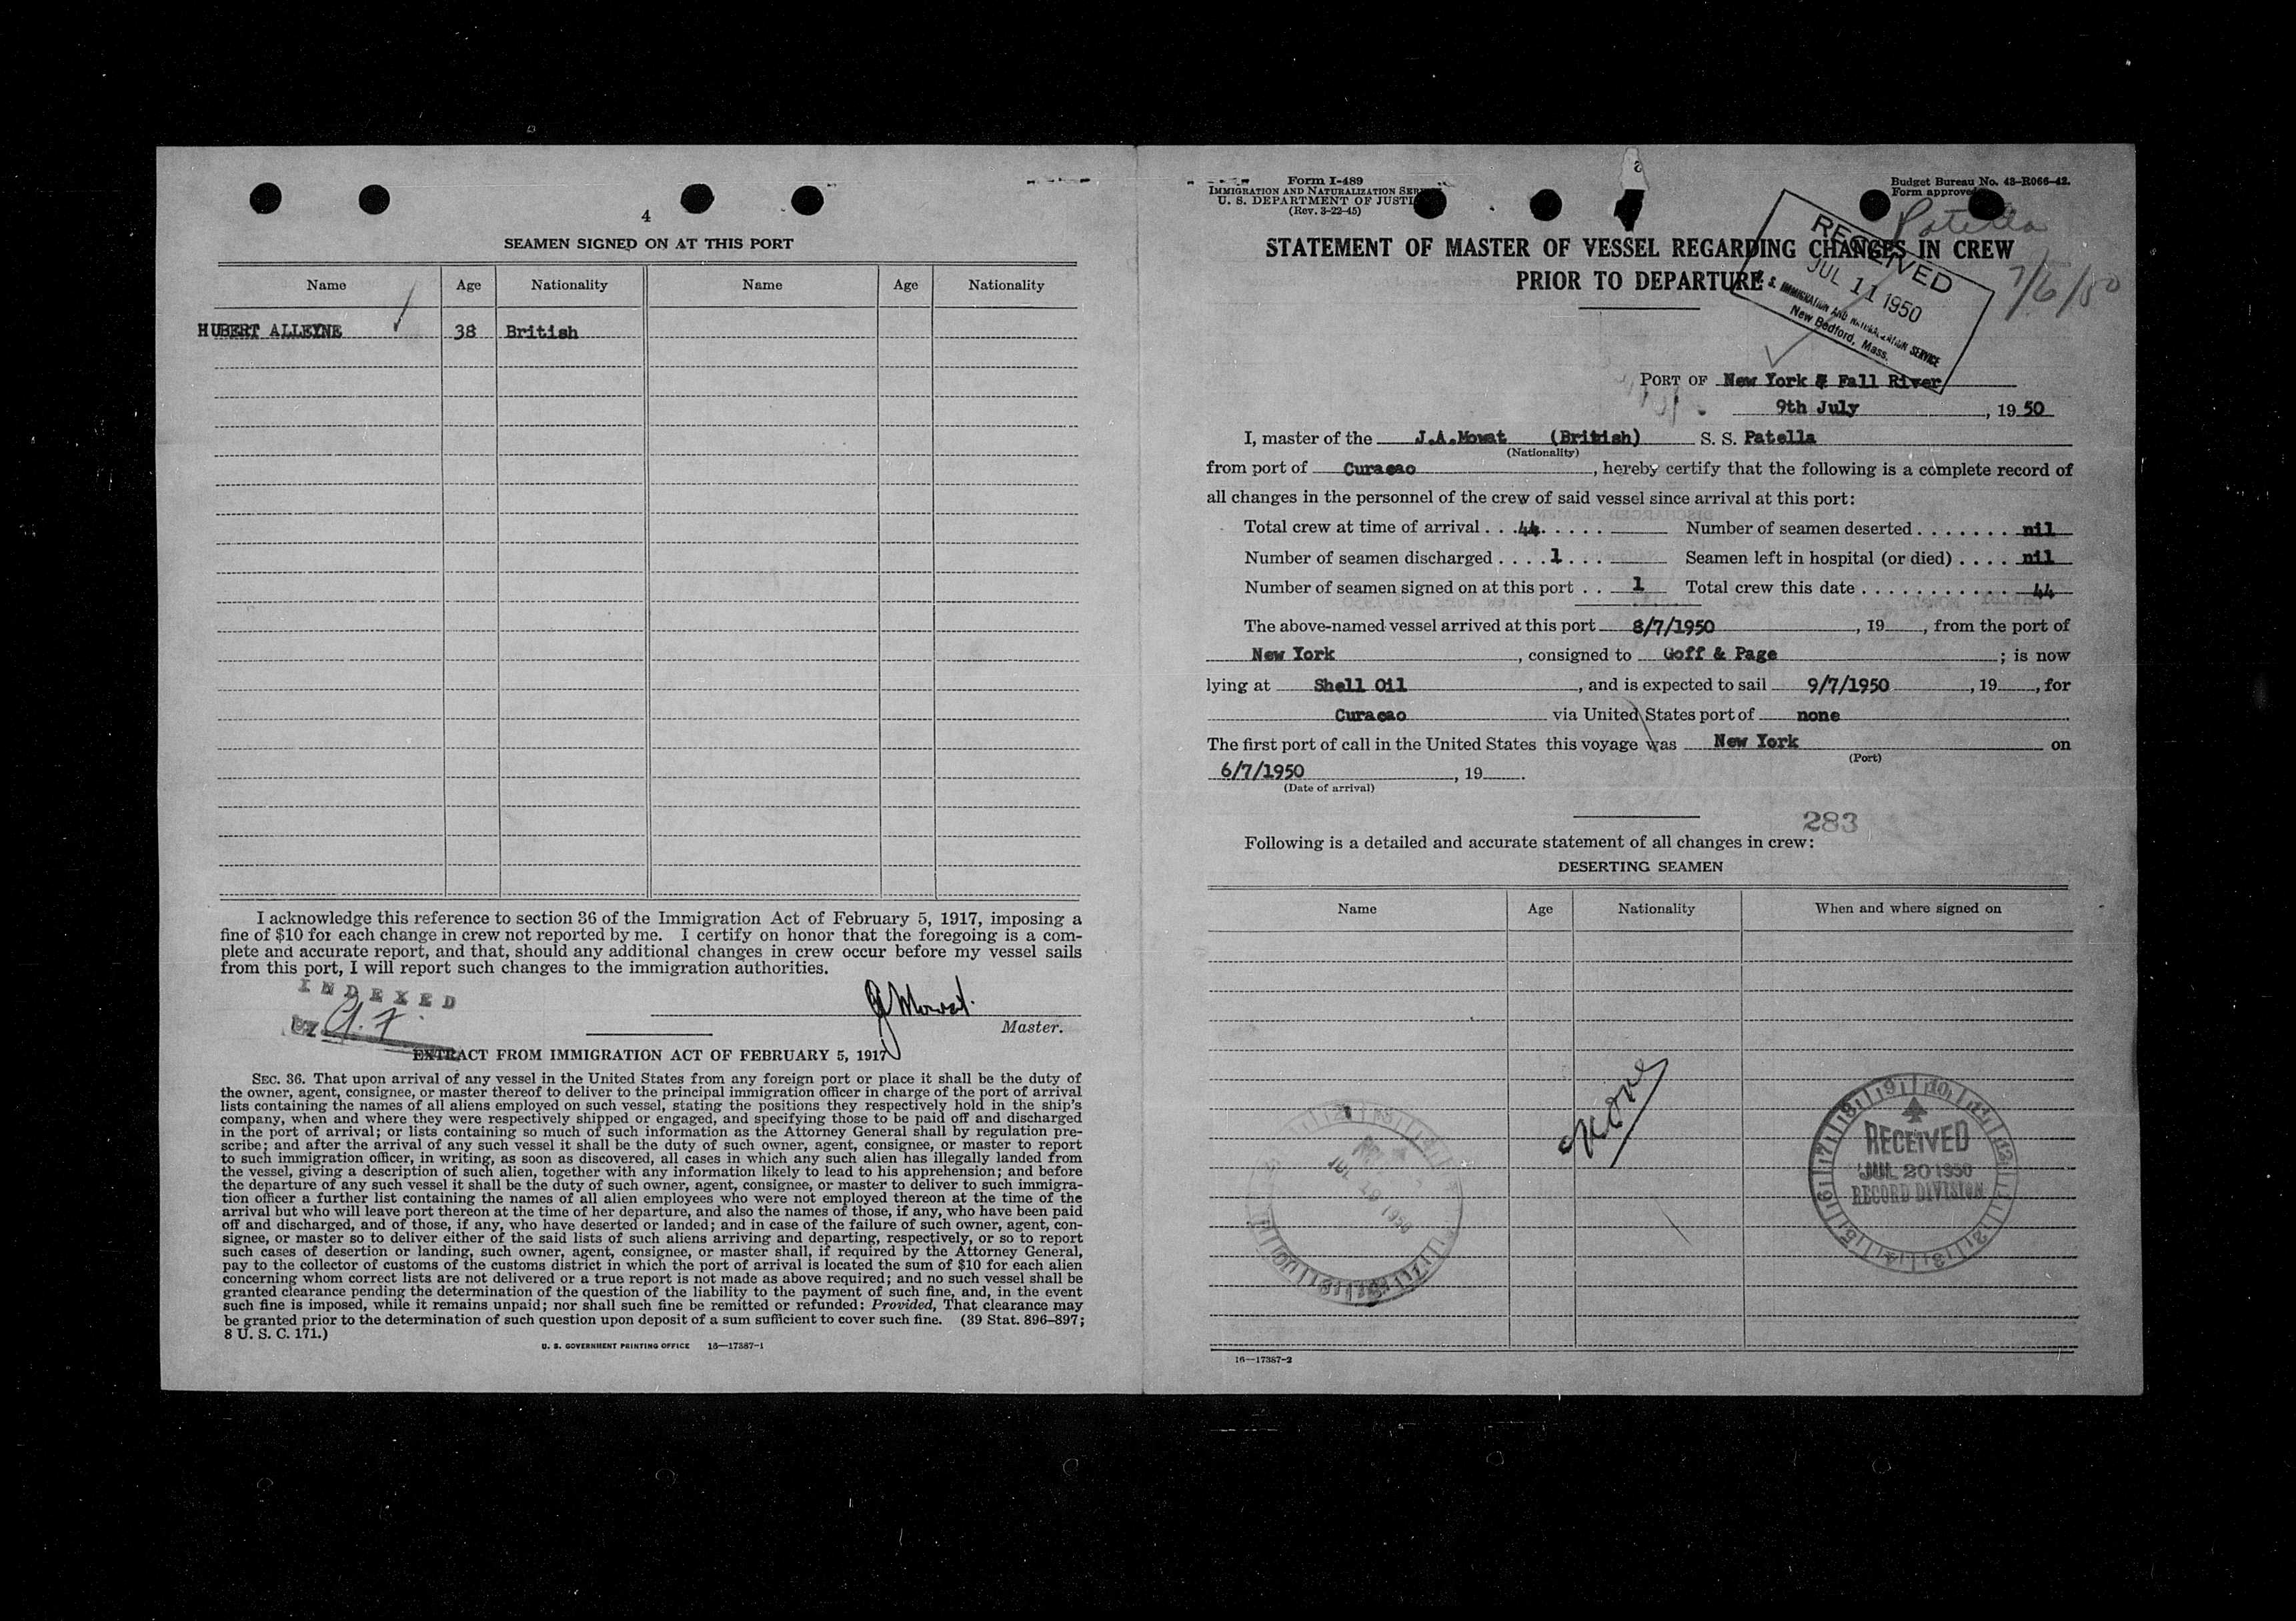 4
SEAMEN SIGNED ON AT THIS PORT
Name Age Nationality Name Age Nationality
HUBERT ALLEYNE 38 British
I acknowledge this reference to section 36 of the Immigration Act of February 5, 1917, imposing a
fine of $10 for each change in crew not reported by me. I certify on honor that the foregoing is a com-
plete and accurate report, and that, should any additional changes in crew occur before my vessel sails
from this port, I will report such changes to the immigration authorities.
INDEXED
J Mowat.
Master.
EXTRACT FROM IMMIGRATION ACT OF FEBRUARY 5, 1917
SEC. 36. That upon arrival of any vessel in the United States from any foreign port or place it shall be the duty of
the owner, agent, consignee, or master thereof to deliver to the principal immigration officer in charge of the port of arrival
lists containing the names of all aliens employed on such vessel, stating the positions they respectively hold in the ship's
company, when and where they were respectively shipped or engaged, and specifying those to be paid off and discharged
in the port of arrival; or lists containing so much of such information as the Attorney General shall by regulation pre-
scribe; and after the arrival of any such vessel it shall be the duty of such owner, agent, consignee, or master to report
to such immigration officer, in writing, as soon as discovered, all cases in which any such alien has illegally landed from
the vessel, giving a description of such alien, together with any information likely to lead to his apprehension; and before
the departure of any such vessel it shall be the duty of such owner, agent, consignee, or master to deliver to such immigra-
tion officer a further list containing the names of all alien employees who were not employed thereon at the time of the
arrival but who will leave port thereon at the time of her departure, and also the names of those, if any, who have been paid
off and discharged, and of those, if any, who have deserted or landed; and in case of the failure of such owner, agent, con-
signee, or master so to deliver either of the said lists of such aliens arriving and departing, respectively, or so to report
such cases of desertion or landing, such owner, agent, consignee, or master shall, if required by the Attorney General,
pay to the collector of customs of the customs district in which the port of arrival is located the sum of $10 for each alien
concerning whom correct lists are not delivered or a true report is not made as above required; and no such vessel shall be
granted clearance pending the determination of the question of the liability to the payment of such fine, and, in the event
such fine is imposed, while it remains unpaid; nor shall such fine be remitted or refunded: Provided, That clearance may
be granted prior to the determination of such question upon deposit of a sum sufficient to cover such fine. (39 Stat. 896–897;
8 U. S. C. 171.)
U. S. GOVERNMENT PRINTING OFFICE 16—17387-1
Form I-489
IMMIGRATION AND NATURALIZATION
U. S. DEPARTMENT OF
(Rev. 3-22-45)
Budget Bureau No. 43-R066-42.
Form approved
Patella
7/6/50
STATEMENT OF MASTER OF VESSEL REGARDING CHANGES IN CREW
PRIOR TO DEPARTURE
RECEIVED
JUL 11 1950
U. S. IMMIGRATION AND NATURALIZATION SERVICE
New Bedford, Mass.
PORT OF New York & Fall River
9th July, 19 50
I, master of the J.A.Mowat (British) S. S. Patella
(Nationality)
from port of Curacao, hereby certify that the following is a complete record of
all changes in the personnel of the crew of said vessel since arrival at this port:
Total crew at time of arrival . . . 44 . . . . . Number of seamen deserted . . . . . . . nil
Number of seamen discharged . . . . 1 . . . Seamen left in hospital (or died) . . . . nil
Number of seamen signed on at this port . . 1 Total crew this date . . . . . . . . . . . . 44
The above-named vessel arrived at this port 8/7/1950, 19, from the port of
New York, consigned to Goff & Page; is now
lying at Shell Oil, and is expected to sail 9/7/1950, 19, for
Curacao via United States port of none.
The first port of call in the United States this voyage was New York on
(Port)
6/7/1950, 19.
(Date of arrival)
283
Following is a detailed and accurate statement of all changes in crew:
DESERTING SEAMEN
Name Age Nationality When and where signed on
None
RECEIVED
JUL 20 1950
RECORD DIVISION
JUL 19 1950
16—17387-2